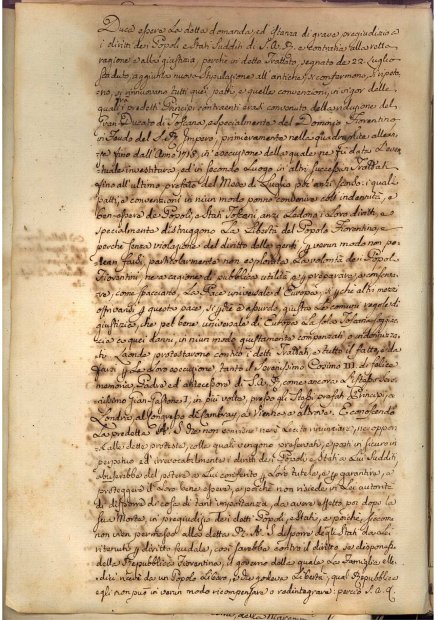 Duce essere La detta domanda, ed istanza di grave pregiudizio a
i diritti dei Popoli e Stati Sudditi di S. A. R. e contraria alla retta
ragione e alla giustizia, perche in detto Trattato, segnato de 22 Luglio
caduto, aggiunta nuova Stipulazione all'antiche, si confermono, si ripeto
no, si rinnuovano tutti quei patti, e quelle convenzioni, in vigor delle
quali i predetti Principi contraenti eran convenuto della riduzione del
Gran Ducato di Toscana, e specialmente del Dominio Fiorentino
in Feudo del S. R. Impero, primieramente nella quadruplice allean
za fino dall'Anno 1718, in esecuzione della quale ne fu data L'even
tuale investitura, ed in secondo Luogo in altri successivi Trattati
fino all'ultimo prefato del Mese di Luglio, i quali
patti, e convenzioni in niun modo ponno convenire coll'indennità, e
ben essere de Popoli, e Stati Toscani, anzi Ledono i Loro diritti, e
specialmente distruggono La Libertà del Popolo Fiorentino, e
perche senza violazione del diritto delle genti in verun modo non po
tean farsi, particolarmente non esplorata La volontà dei Popoli
Fiorentini, ne a cagione di pubblica utilità o per preparare, o conserva
re, come spacciano, La Pace universale d'Europa, si perche altri mezzi
offrivansi per questa pace, si perche è assurdo, giusta Le comuni regole di
giustizia, che pel bene universale di Europa La sola Toscana soggiac
cia a quei danni, in niun modo giustamente compensati o indennizza
ti. Laonde protestarono contro i detti Trattati, e tutto il fatto, e da
farsi per La Loro esecuzione, tanto il Serenissimo Cosimo III. di felice
memoria, Padre ed antecessore di S. A. R. come ancora L'istesso Sere
nissimo Gian Gastone I, in più volte, presso gli Stessi prefati Principi, a
Londra, al Congresso di Cambray, a Vienna, e altrove. E conoscendo
La predetta R. A. S. che non conviene, ne è Lecito rinunziare, ne oppon
si alle dette proteste, colle quali vengono preservati, e posti in sicuro in
perpetuo ed irrevocabilmente i diritti dei Popoli e Stati a Lui Sudditi,
abuserebbe del potere a Lui conferito per Loro tutela, e per garantire, e
proteggere il Loro bene essere, e poiche non risiede in Lui autorità
di disporre di cosa di tanta importanza, da avere effetto poi dopo la
sua Morte, in pregiudizio dei detti Popoli, e Stati, e poiche, siccome
non vien permesso alla detta R. A. S. disporre degli Stati da Lui
ritenuti per diritto feudale, così sarebbe contro il diritto se disponesse
della Repubblica Fiorentina, il governo della quale La Famiglia
da un Popolo Libero, e che godeva Libertà, qual Repubblica
egli non può in verun modo ricompensare o redintegrare: perciò S. A. R.